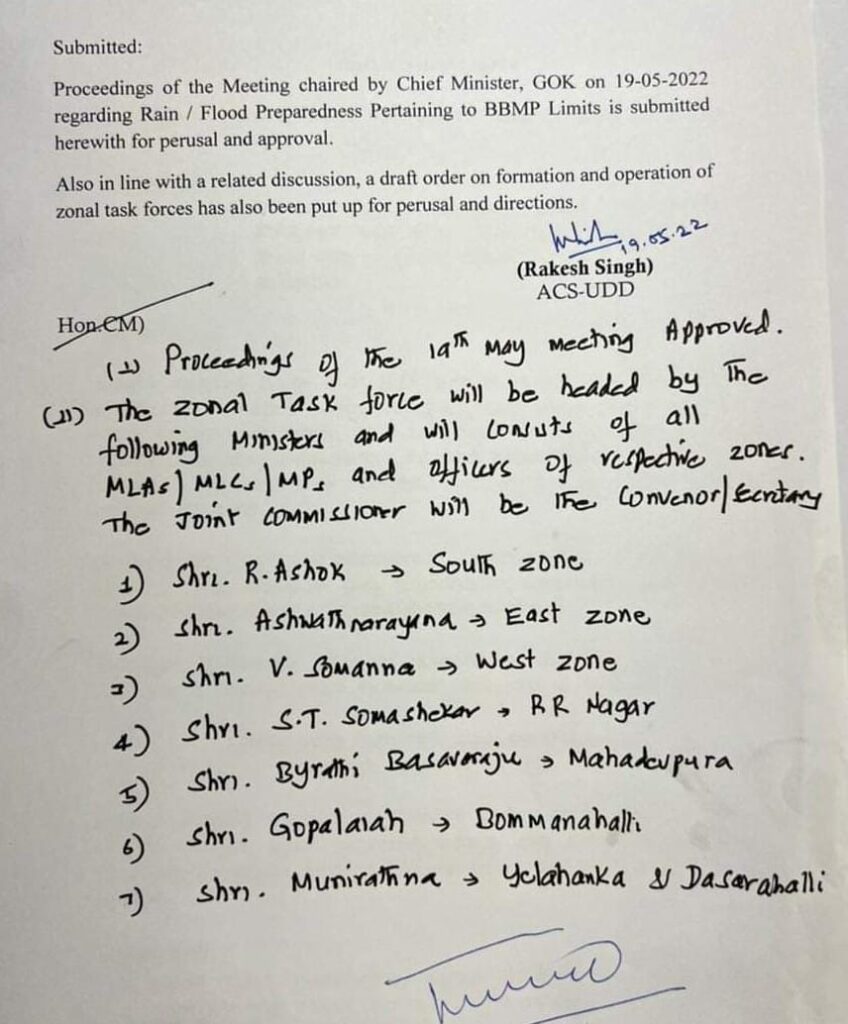 Submitted:
Proceedings of the Meeting chaired by Chief Minister, GOK on 19-05-2022
regarding Rain / Flood Preparedness Pertaining to BBMP Limits is submitted
herewith for perusal and approval.
Also in line with a related discussion, a draft order on formation and operation of
zonal task forces has also been put up for perusal and directions.
19.05.22
(Rakesh Singh)
ACS-UDD
Hon.CM)
(I) Proceedings of the 19th May meeting Approved.
(II) The zonal Task force will be headed by the
following Ministers and will consists of all
MLAs/MLCs/MPs and officers of respective zones.
The Joint commissioner will be the Convenor/Secretary
1) Shri. R. Ashok → South zone
2) Shri. Ashwathnarayana → East zone
3) Shri. V. Somanna → West zone
4) Shri. S.T. Somashekar → RR Nagar
5) Shri. Byrathi Basavaraju → Mahadevpura
6) Shri. Gopalaiah → Bommanahalli
7) Shri. Munirathna → Yelahanka & Dasarahalli